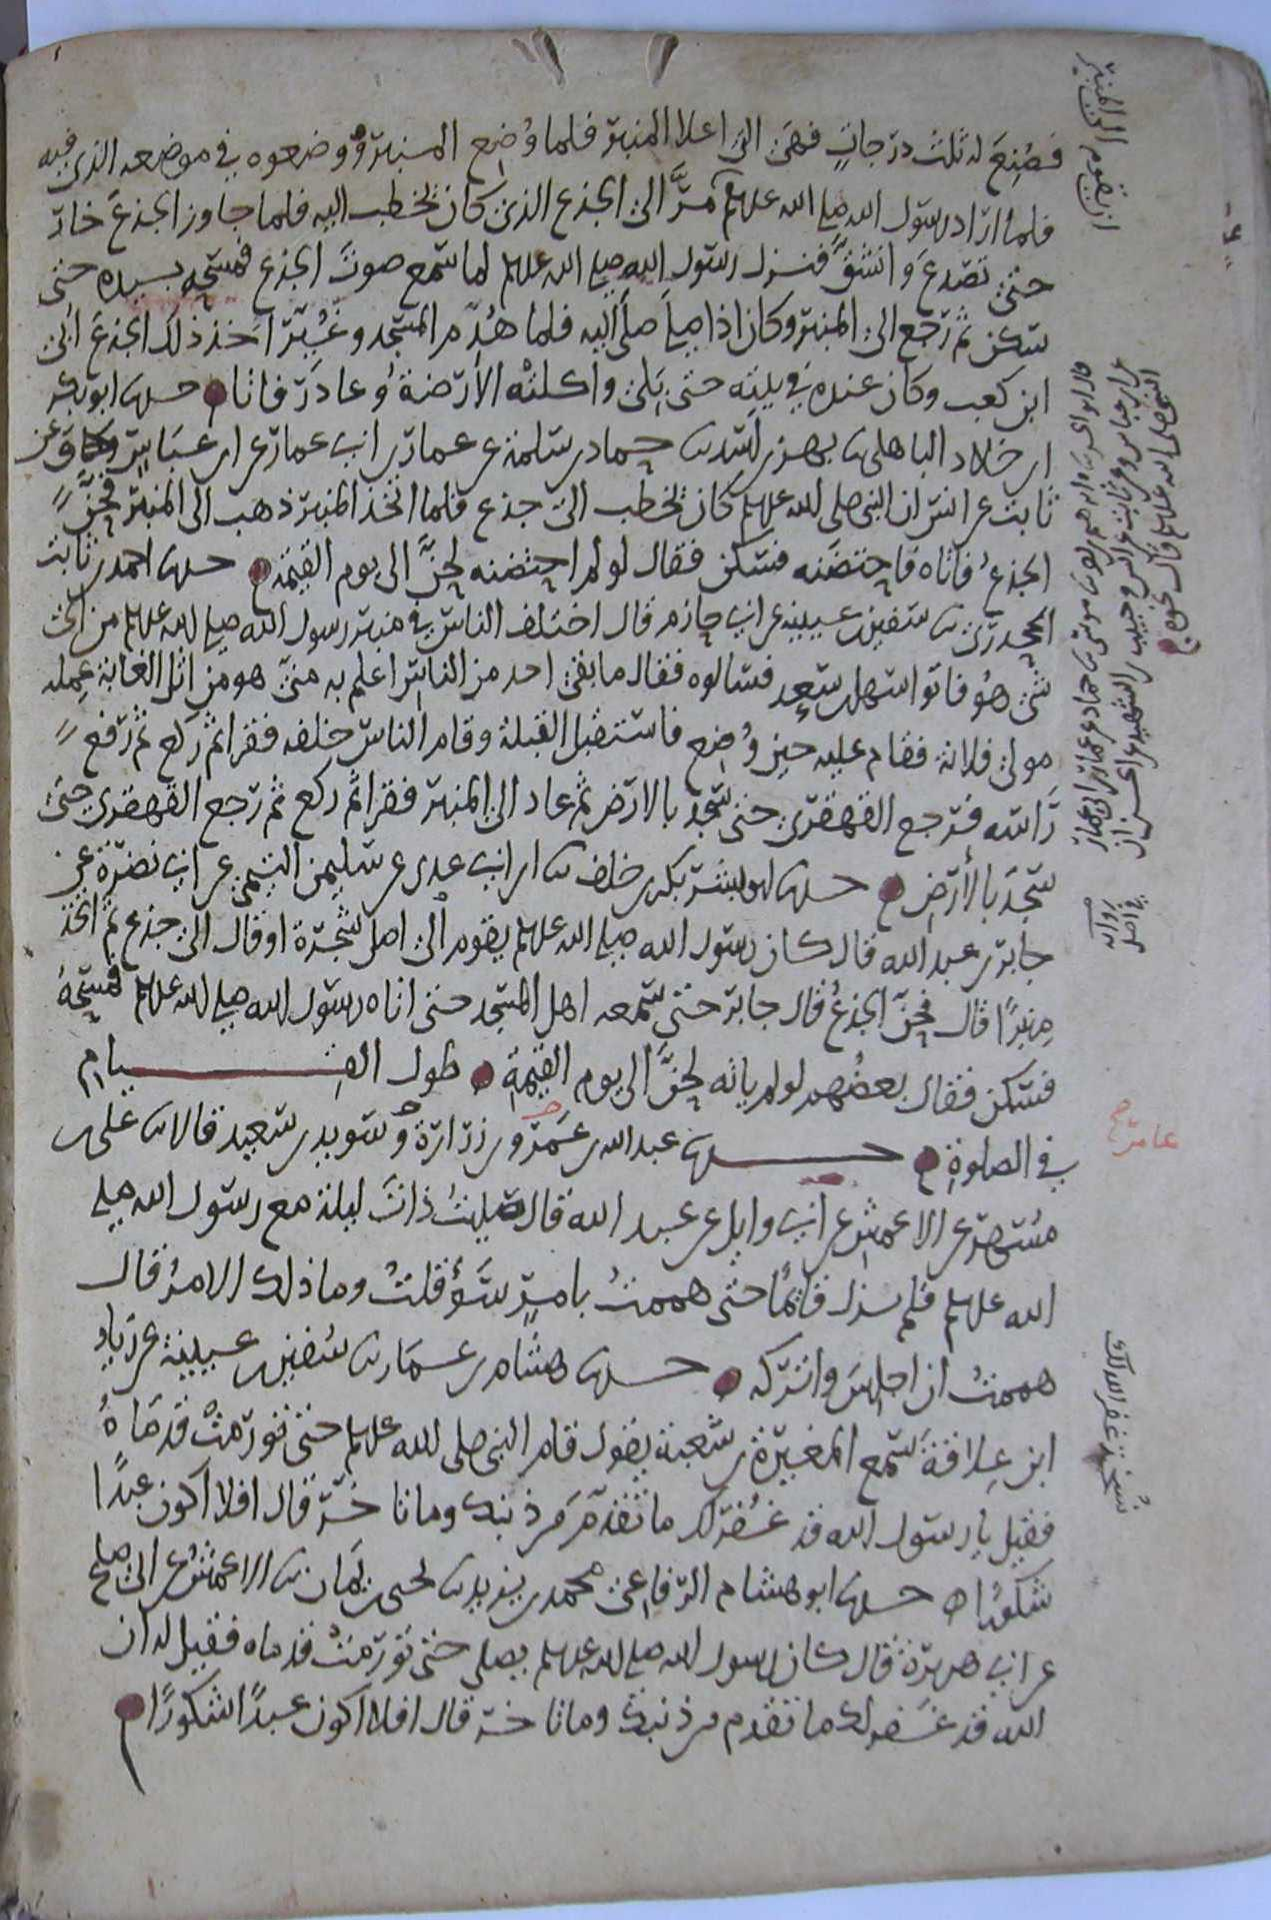 فصُنِعَ له ثلث درجاتٍ فهي التي اعلا المنبر فلما وُضِع المنبر وُوضعوه في موضعه الذي فيه
فلما اراد رسول الله صلى الله عليه وسلم مرَّ الى الجذع الذي كان يخطب اليه فلما جاوز الجذعَ خارَ
حتى تصدعَ وانشقَّ فنزل رسول الله صلى الله عليه وسلم لما سمع صوتَ الجذع فمسحه بيده حتى
سكن ثم رجع الى المنبر وكان اذا صلى صلى اليه فلما هُدِم المسجد وغُيِّرَ اخذ ذلك الجذعَ اُبيّ
ابن كعب وكان عنده في بيته حتى بَلِيَ واكلتْه الأرَضةُ وعادَ رفاتا حدثنا ابو بكر
ابن خلاد الباهلي ثنا بهز بن اسد ثنا حماد بن سلمة عن عمار بن ابي عمار عن ابن عباس وعن
ثابت عن انس ان النبي صلى الله عليه وسلم كان يخطب الى جذع فلما اتخذ المنبر ذهب الى المنبر فحنَّ
الجذعُ فاتاه فاحتضنه فسكن فقال لو لم احتضنه لحنَّ الى يوم القيمة حدثنا احمد بن ثابت
الجحدري ثنا سفين بن عيينة عن ابي حازم قال اختلف الناس في منبر رسول الله صلى الله عليه وسلم من اي
شي هُو فاتوا سهل بن سعد فسالوه فقال ما بقي احد من الناس اعلم به منّي هو من اثل الغابة عمله
مولى فلانة فقام عليه حين وُضِع فاستقبل القبلة وقام الناس خلفه فقرا ثم ركع ثم رفع
رَاسه فرجع القهقرى حتى سجد بالارض ثم عاد الى المنبر فقرا ثم ركع ثم رجع القهقرى حتى
سجَدَ بالأرض حدثنا ابو بشر بكر بن خلف ثنا ابن ابي عدي عن سليمن التيمي عن ابي نضرة عن
جابر بن عبد الله قال كان رسول الله صلى الله عليه وسلم يقوم الى اصل شجرة او قال الى جذع ثم اتخذ
مِنبرًا قال فحنّ الجذعُ قال جابر حتى سمعه اهل المسجد حتى اتاه رسول الله صلى الله عليه وسلم فمسَحَهُ
فسكن فقال بعضُهم لو لم ياته لحنَّ الى يوم القيمة طول القيام
في الصلوة حدثنا عبد الله بن عَمرو بن زرارة وسويد بن سعيد قالا ثنا علي بن
مُسهر عن الاعمش عن ابي وايل عن عبد الله قال صليتُ ذاتَ ليلة مع رسول الله صلى
الله عليه وسلم فلم يزل قائمًا حتى هممتُ بامرِ سَوْءٍ قلتُ وما ذلك الامرُ قال
هممتُ ان اجلِسَ واتركه حدثنا هشام بن عمار ثنا سفين بن عيينة عن زياد
ابن عِلاقةَ سَمع المغيرة بن شعبة يقول قام النبي صلى الله عليه وسلم حتى تورّمتْ قدمَاهُ
فقيل يا رسول الله قد غُفرَ لك ما تقدّم من ذنبك وما تاخر قال افلا اكون عبدًا
شكورًا حدثنا ابو هشام الرفاعي محمد بن يزيد ثنا يحيى بن يمان ثنا الاعمش عن ابي صلح
عن ابي هريرة قال كان رسول الله صلى الله عليه وسلم يصلي حتى تورّمتْ قدماه فقيل له ان
الله قد غفر لك ما تقدم من ذنبك وما تاخر قال افلا اكون عبدًا شكورًا
ان يقوم الى المنبر
قال ابو الحسن
النبي صلى الله عليه وسلم قال نحوه
عامر صح